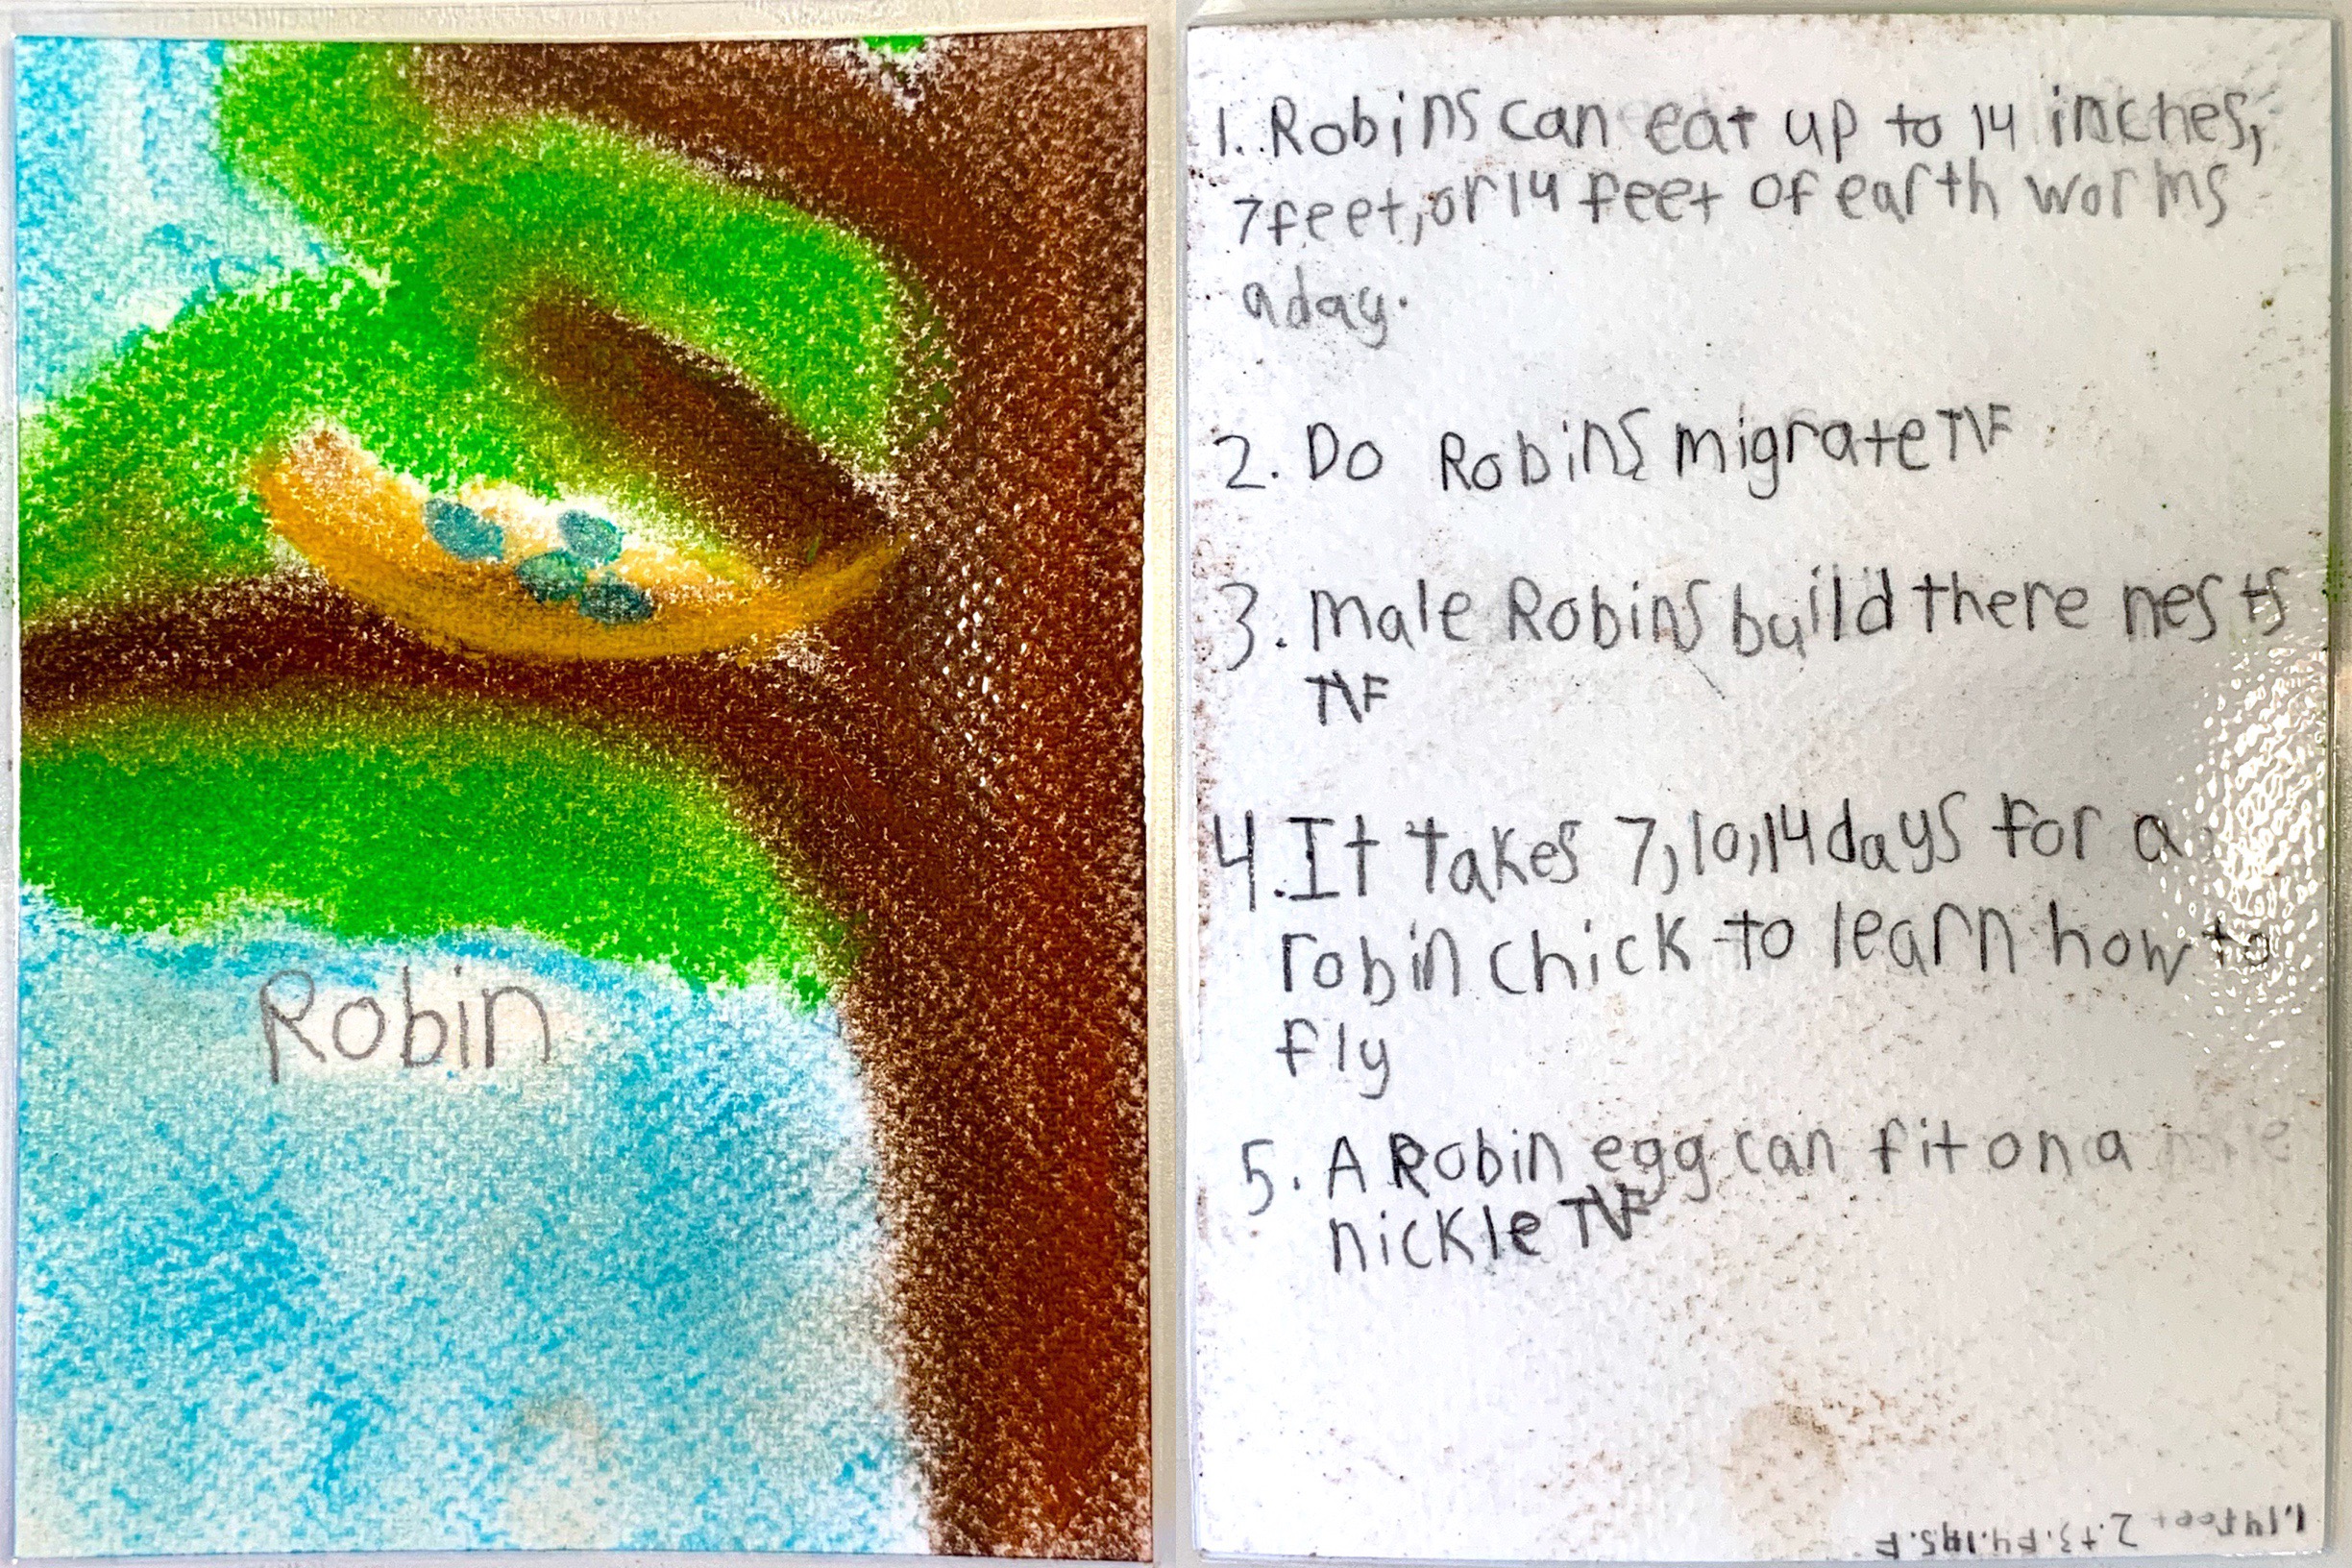 Robin
1. Robins can eat up to 14 inches,
7 feet, or 14 feet of earth worms
a day.
2. Do Robins migrate T\F
3. Male Robins build there nests
T\F
4. It takes 7, 10, 14 days for a
robin chick to learn how to
fly
5. A Robin egg can fit on a
nickle T\F
1. 14 feet 2. t 3. F 4. 14 5. F